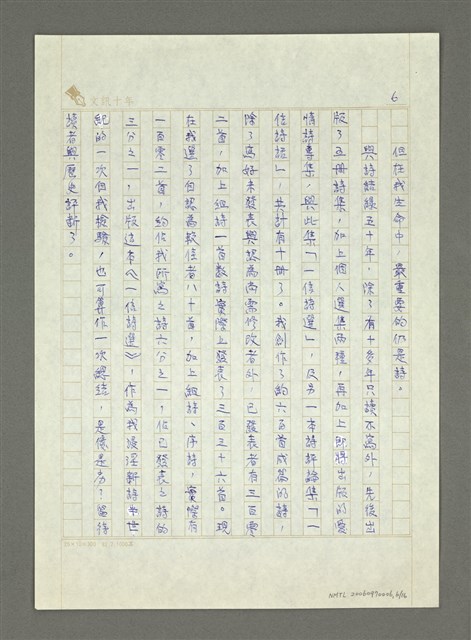 文訊十年
6
但在我生命中，最重要的仍是詩。
與詩結緣五十年，除了有十多年只讀不寫外，先後出
版了五冊詩集，加上個人選集兩種，再加上即將出版的愛
情詩專集，與此集「一信詩選」，及另一本詩評論集「一
信詩話」，共計有十冊了。我創作了約六百首成篇的詩，
除了寫好未發表與認為尚需修改者外，已發表者有三百零
二首，加上組詩一首數詩實際上發表了三百三十六首。現
在我選了自認為較佳者八十首，加上組詩、序詩，實際有
一百零二首，約佔我所寫之詩六分之一，佔已發表之詩的
三分之一，出版這本《一信詩選》，作為我浸淫新詩半世
紀的一次自我檢驗，也可算作一次總結，是優是劣？留待
讀者與歷史評斷了。
NMTL 20060970006, 6/16